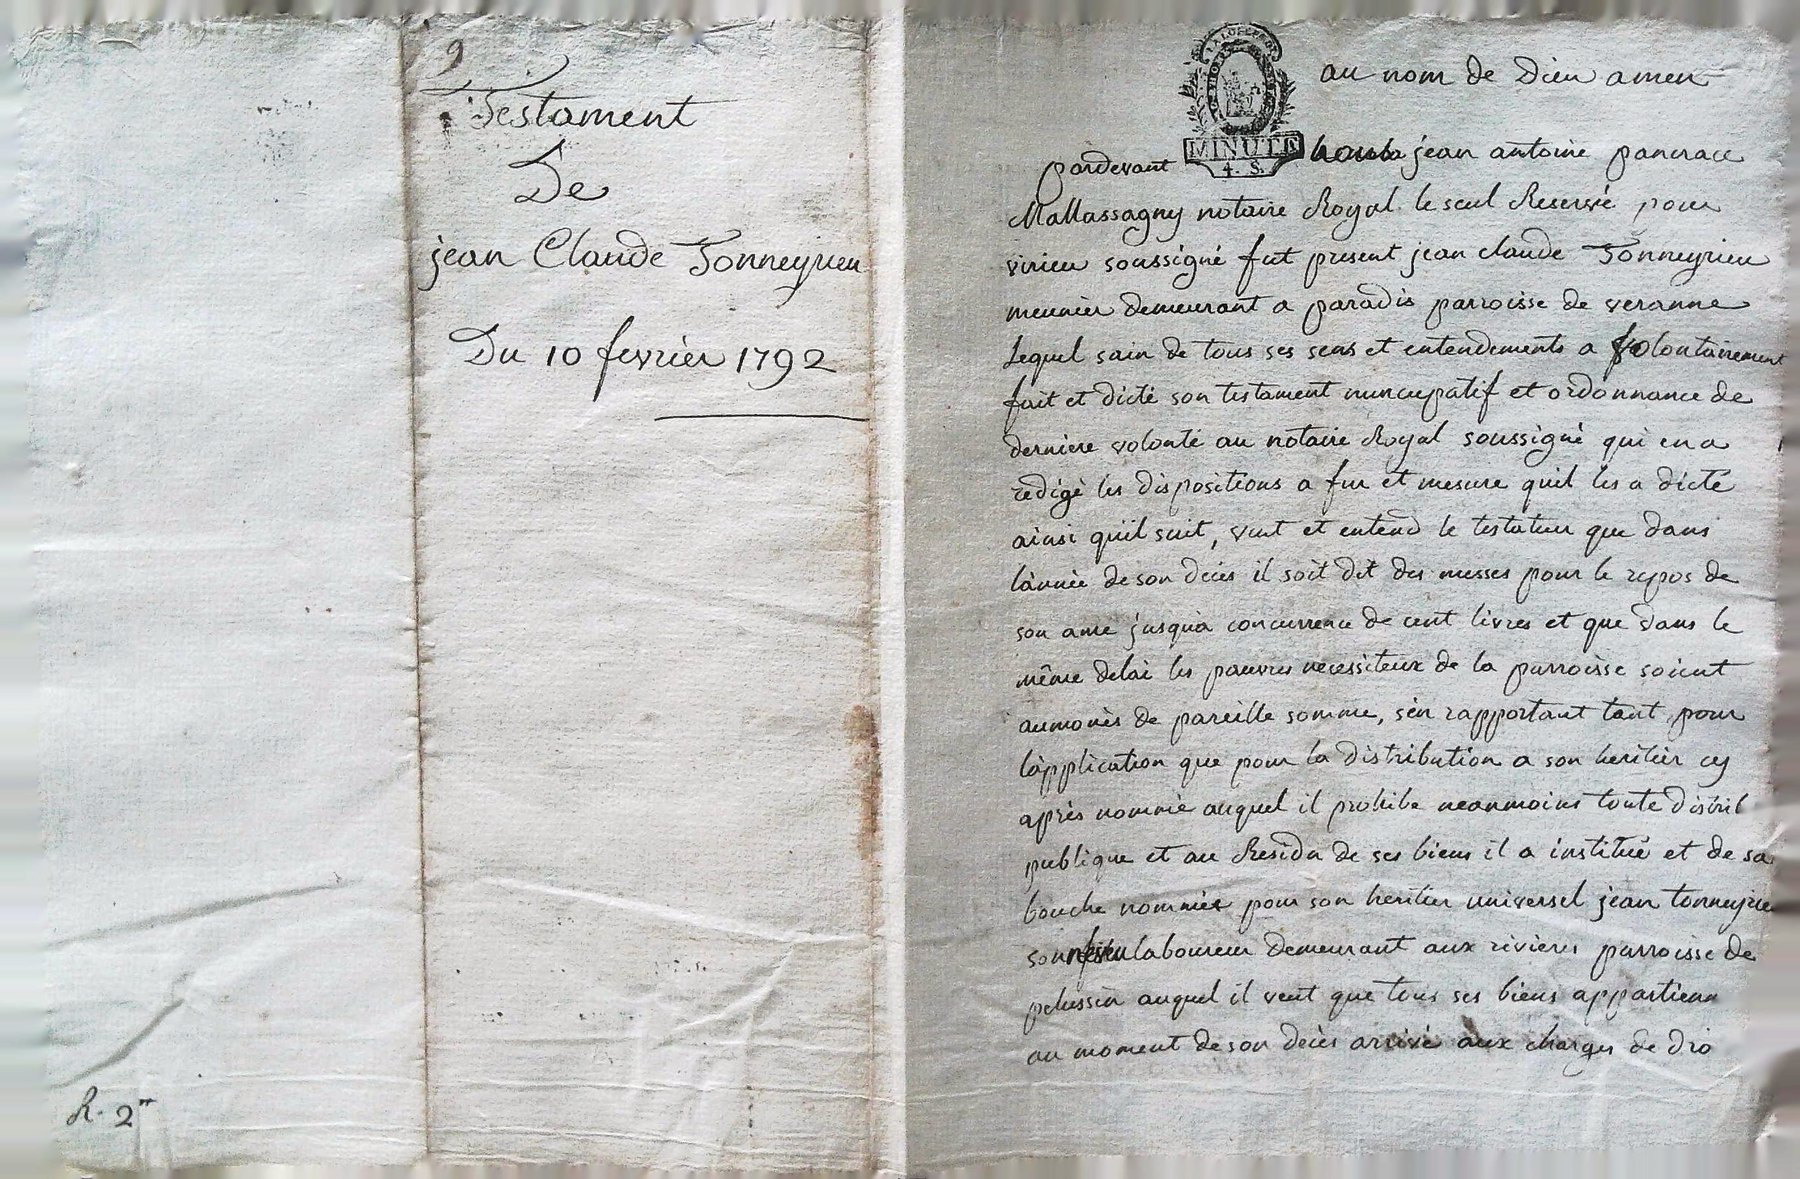 9
Testament
De
jean Claude Tonneyrieu
Du 10 fevrier 1792
R. 2
au nom de Dieu amen
MINUTE
4. S.
pardevant jean antoine pancrace
Mallassagny notaire Royal le seul Reservé pour
virieu soussigné fut present jean claude Tonneyrieu
meunier demeurant a paradis parroisse de veranne
Lequel sain de tous ses sens et entendements a volontairement
fait et dicté son testament nuncupatif et ordonnance de
derniere volonté au notaire Royal soussigné qui en a
redigé les dispositions a fur et mesure quil les a dicté
ainsi quil suit, veut et entend le testateur que dans
lànnée de son decès il soit dit des messes pour le repos de
son ame jusquà concurrence de cent livres et que dans le
même delai les pauvres necessiteux de la parroisse soient
aumonès de pareille somme, sén rapportant tant pour
làpplication que pour la distribution a son heritier cy
après nommé auquel il prohibe neanmoins toute distrib
publique et au Residu de ses biens il a institué et de sa
bouche nommé pour son heritier universel jean tonneyrie
son neveu laboureur demeurant aux rivieres parroisse de
pelussin auquel il veut que tous ses biens appartienn
au moment de son decès arrivé aux charges de dro